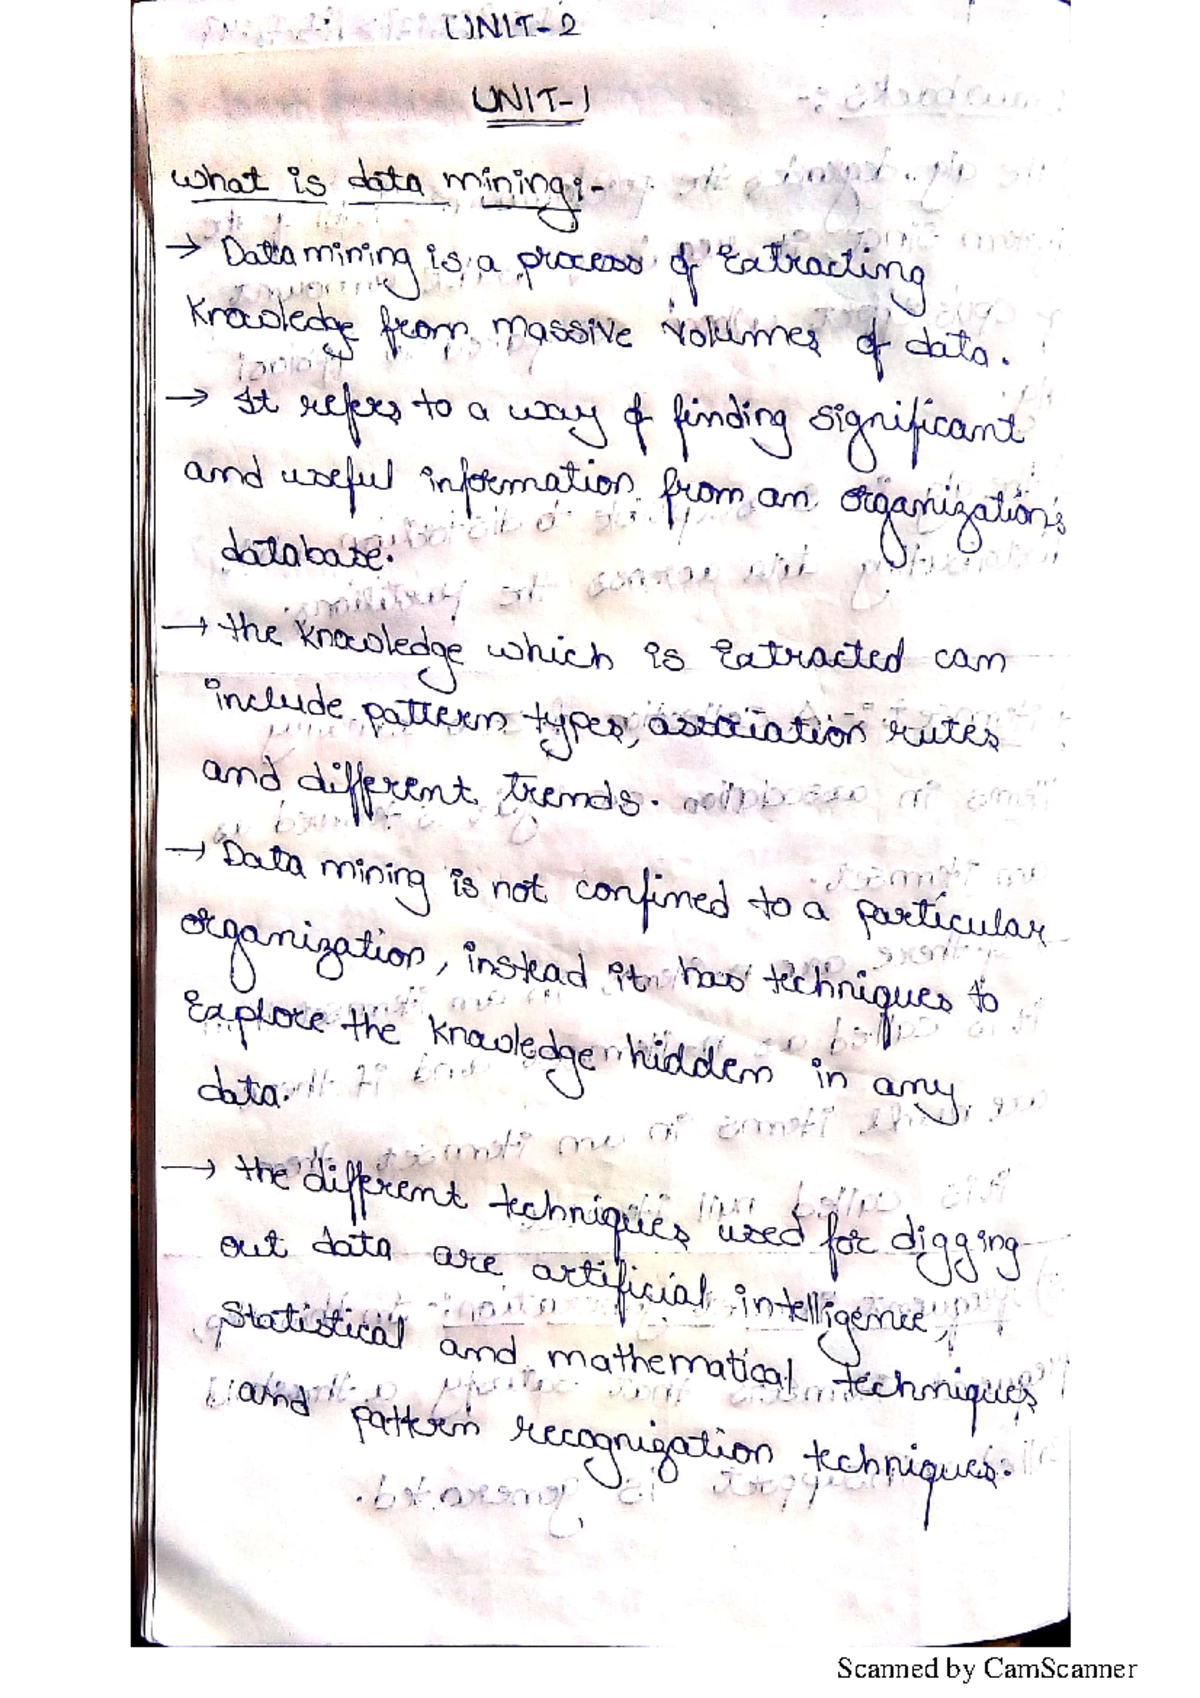 UNIT-2
UNIT-1
what is data mining:-
→ Data mining is a process of Extracting
Knowledge from massive volumes of data.
→ It refers to a way of finding significant
and useful information from an organization's
database.
→ the knowledge which is Extracted can
include pattern types, association rules
and different trends.
→ Data mining is not confined to a particular
organization, instead it has techniques to
Explore the knowledge hidden in any
data.
→ the different techniques used for digging
out data are artificial intelligence,
Statistical and mathematical techniques
and pattern recognization techniques.
Scanned by CamScanner